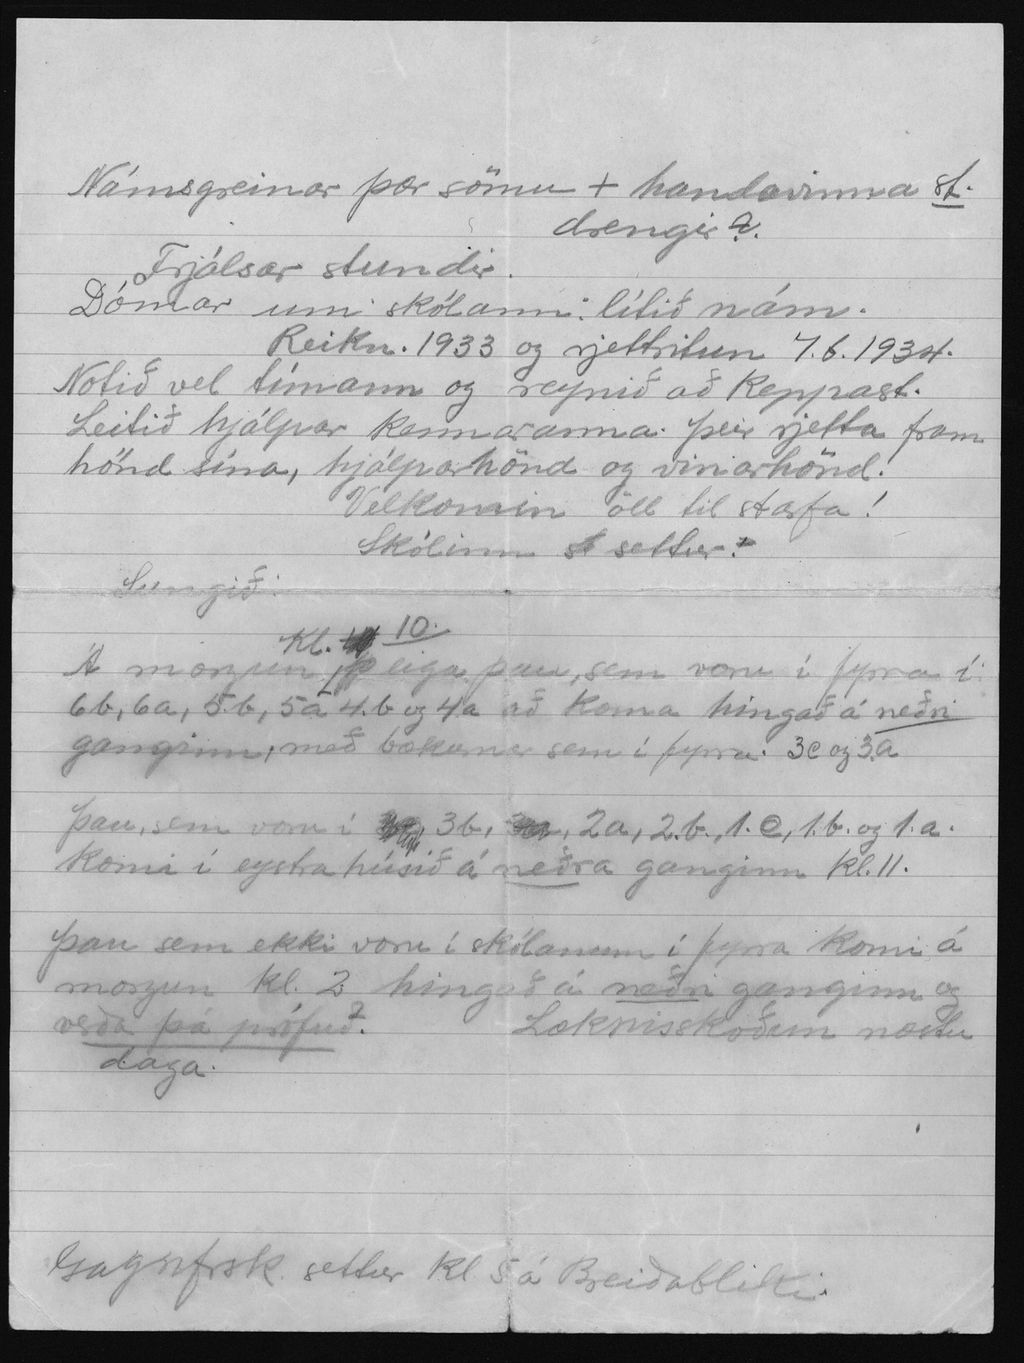 Námsgreinar þær sömu + handavinna st.
drengir?.
Frjálsar stundir.
Dómar um skólann: lítið nám.
Reikn. 1933 og rjettritun 7.6.1934.
Notið vel tímann og reynið að keppast.
Leitið hjálpar kennaranna. Þeir rjetta fram
hönd sína, hjálparhönd og vinarhönd.
Velkomin öll til starfa!
Skólinn settur.
Sungið:
Kl. 10.
Á morgun eiga þau, sem voru í fyrra í
6b, 6a, 5.b, 5a 4.b og 4a að koma hingað á neðri
ganginn, með bækurnar sem í fyrra. 3c og 3.a
Þau, sem voru í 3b, 2a, 2.b., 1.c, 1.b. og 1.a.
komi í eystra húsið á neðra ganginn kl. 11.
Þau sem ekki voru í skólanum í fyrra komi á
morgun kl. 2 hingað á neðri ganginn og
verða þá prófuð?. Læknisskoðun næstu
daga.
Gagnfrsk. settur kl 5 á Breiðabliki.